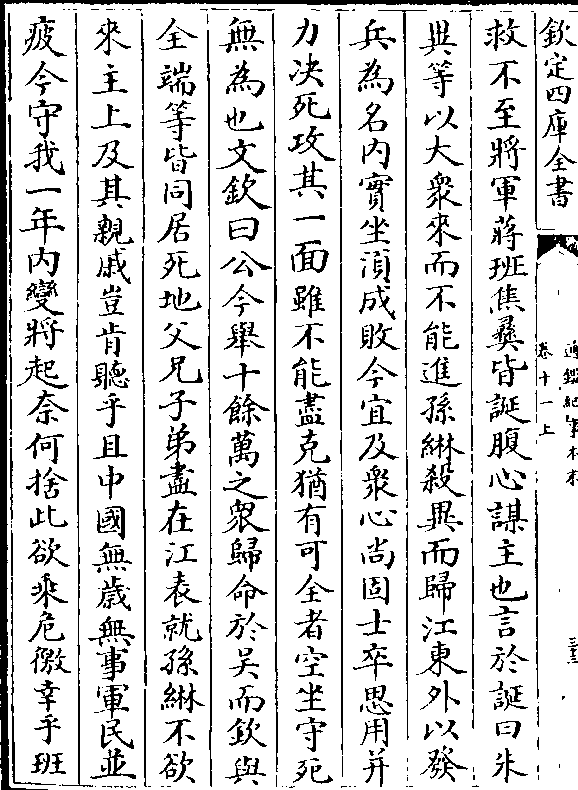 欽定四庫全書
通鑑紀事本末
卷十一上
三三
救不至將軍蔣班焦彞皆誕腹心謀主也言於誕曰朱
異等以大衆來而不能進孫綝殺異而歸江東外以發
兵為名内實坐湏成敗今宜及衆心尚固士卒思用并
力决死攻其一面雖不能盡克猶有可全者空坐守死
無為也文欽曰公今舉十餘萬之衆歸命於吴而欽與
全端等皆同居死地父兄子弟盡在江表就孫綝不欲
來主上及其親戚豈肯聽乎且中國無歲無事軍民並
疲今守我一年内變將起奈何捨此欲乘危徼幸乎班